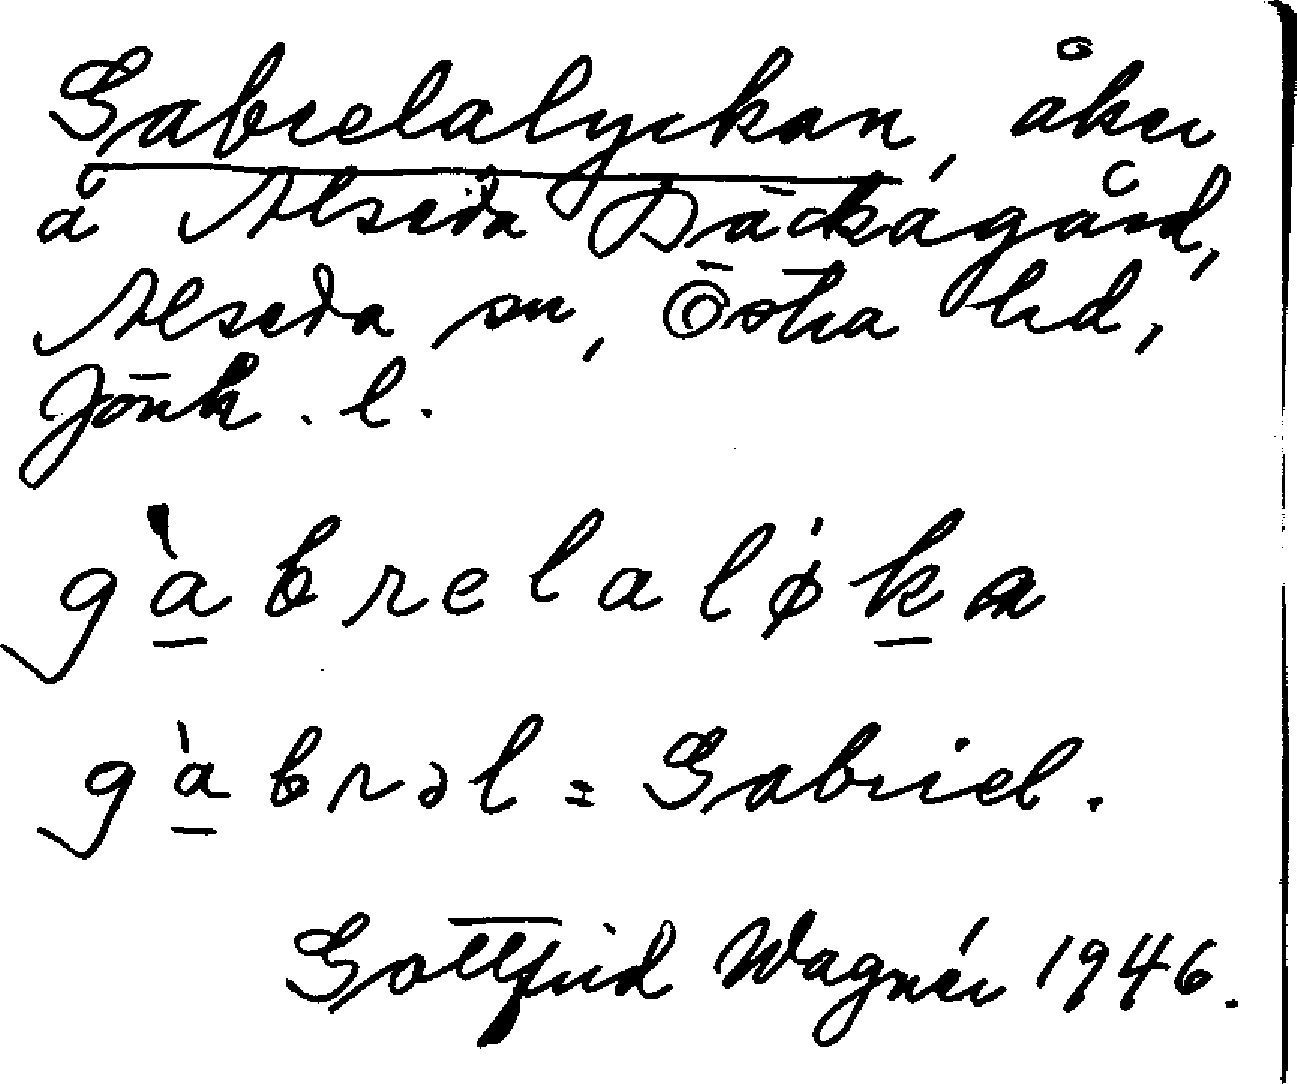 Gabrelalyckan, åker
å Alseda Bäckagård,
Alseda sn, Östra hd,
Jönk. l.
gàbrelaløka
gàbrəl = Gabriel.
Gottfrid Wagnér 1946.